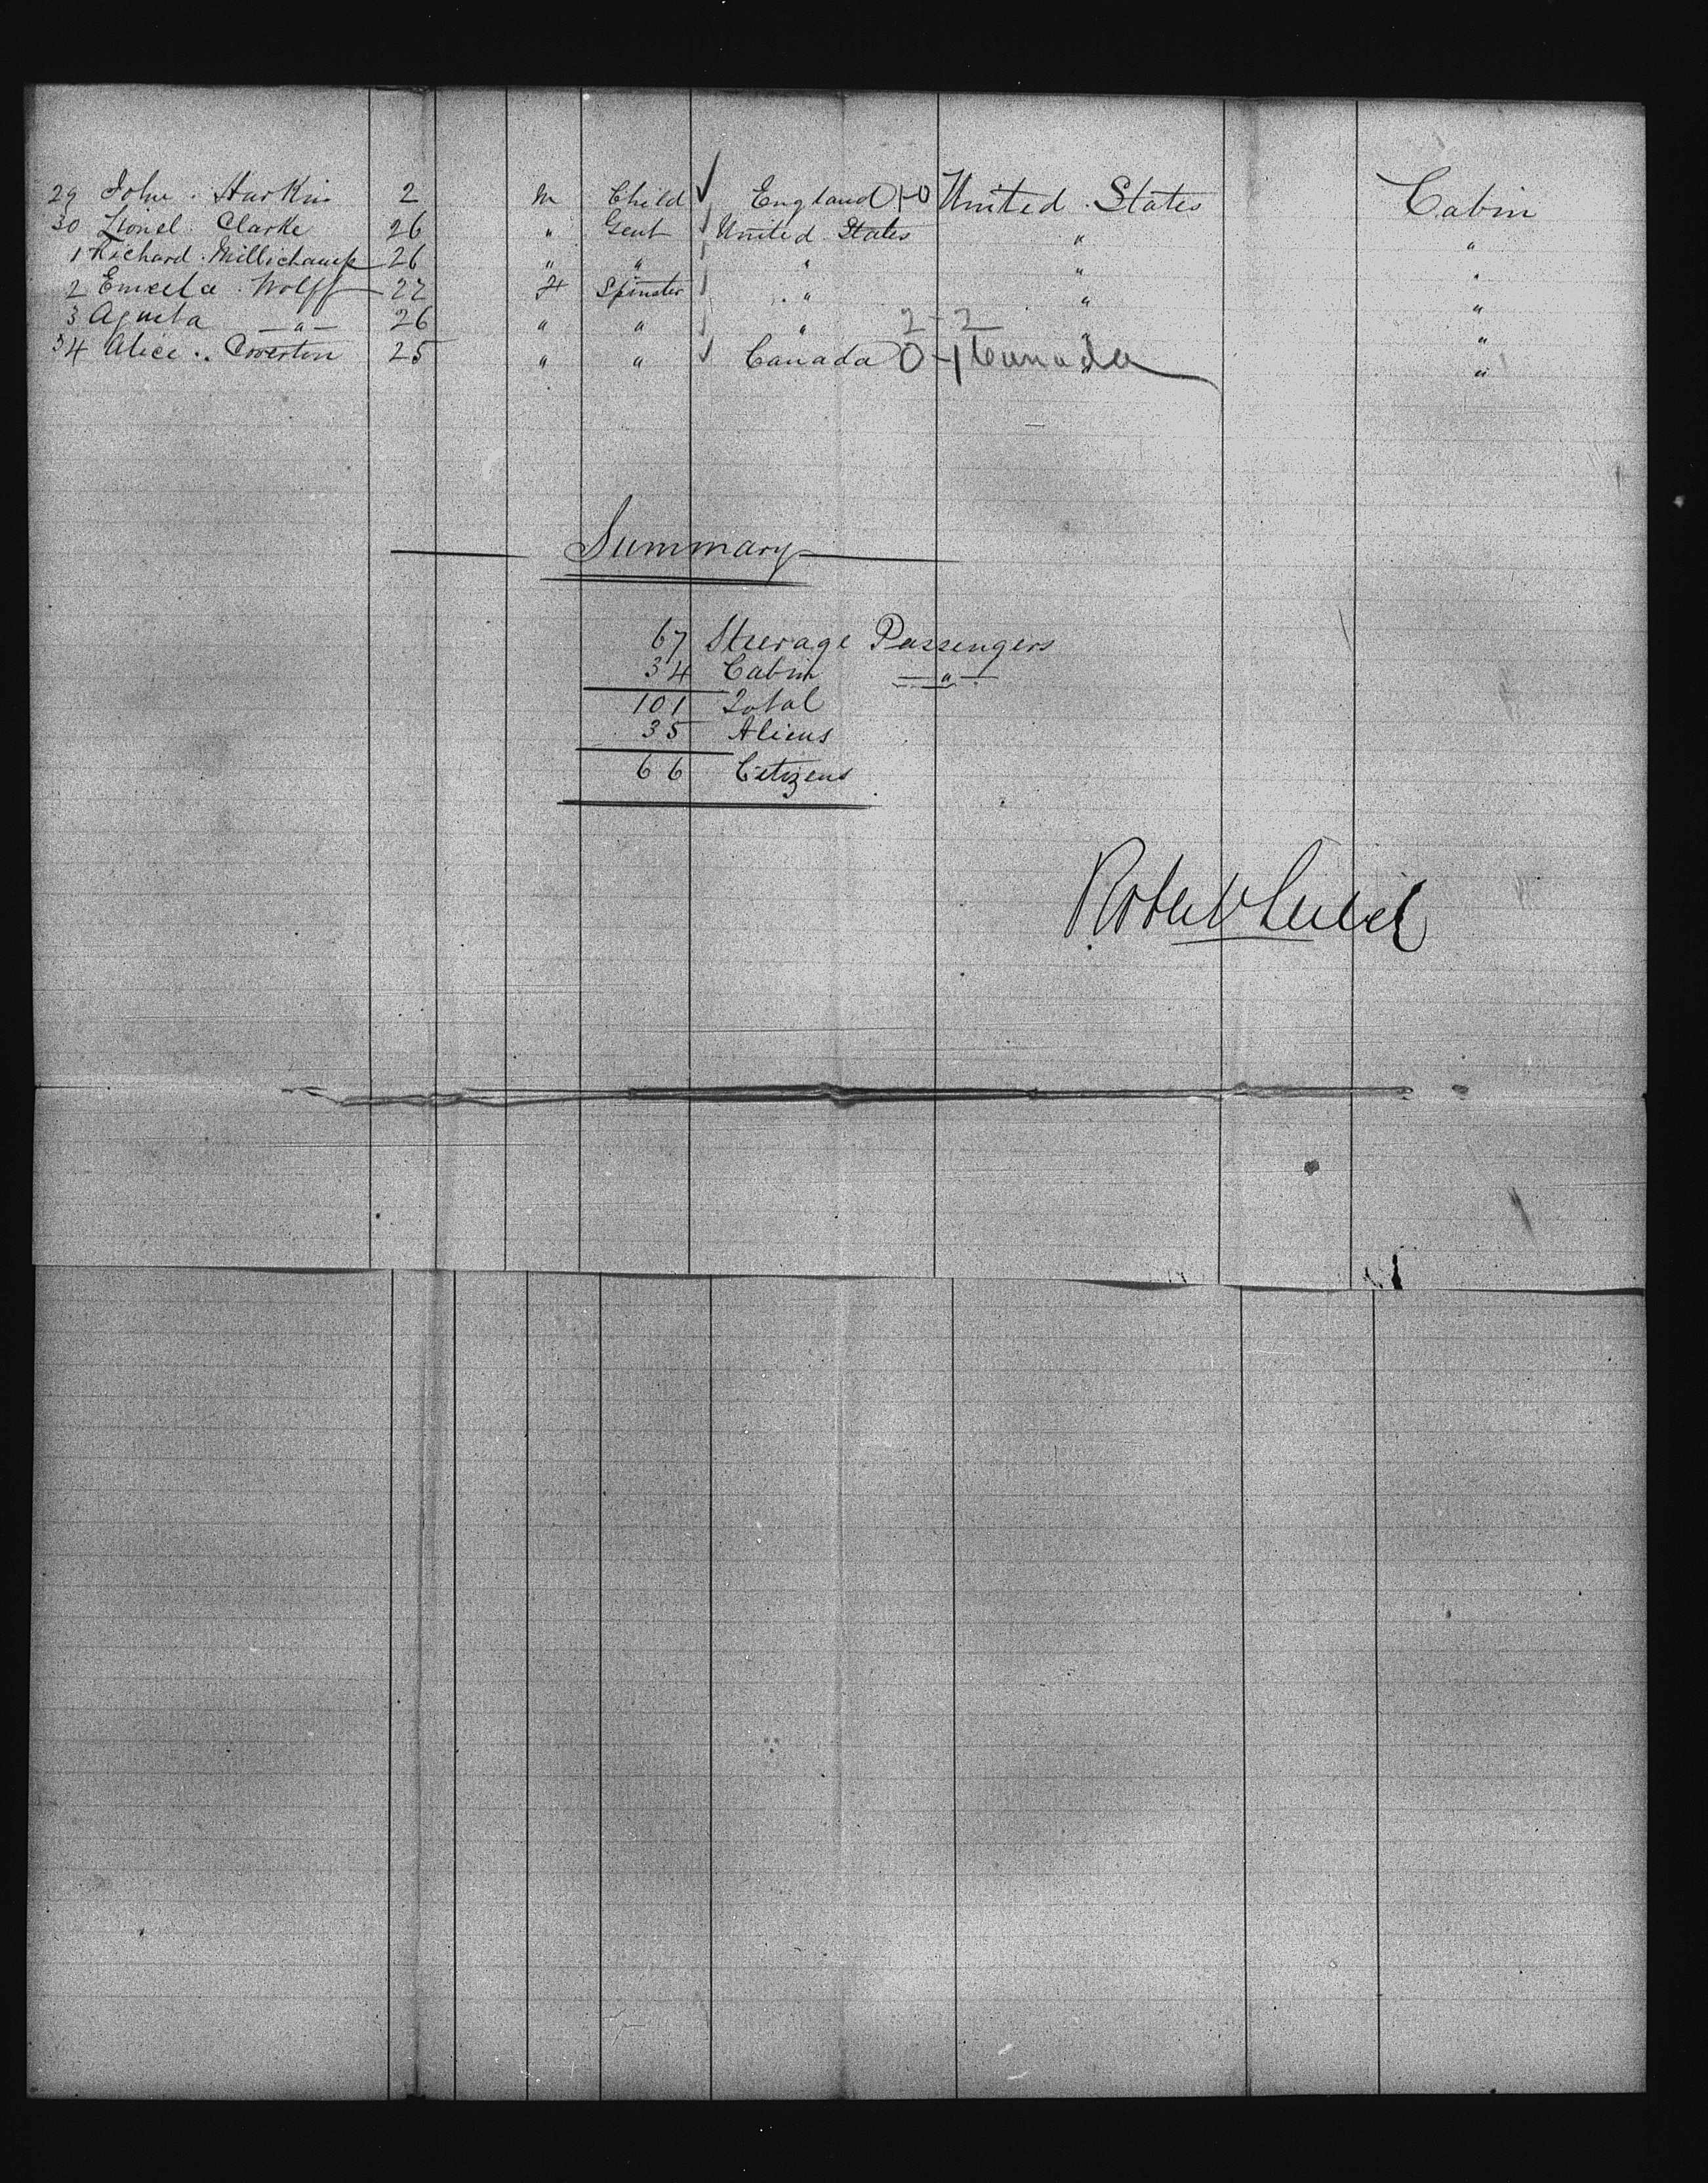 29 John Harkin 2 m Child ✓ England 1-0 United States Cabin
30 Lionel Clarke 26 " Gent United States " "
1 Richard Millichamp 26 " " " " "
2 Wolff 27 F Spinster " " "
3 Agusta — " — 26 " " " "
2-2
34 Alice Coverton 25 " " ✓ Canada 0-1 Canada "
Summary
67 Steerage Passengers
34 Cabin — " —
101 Total
35 Aliens
66 Citizens
Robert